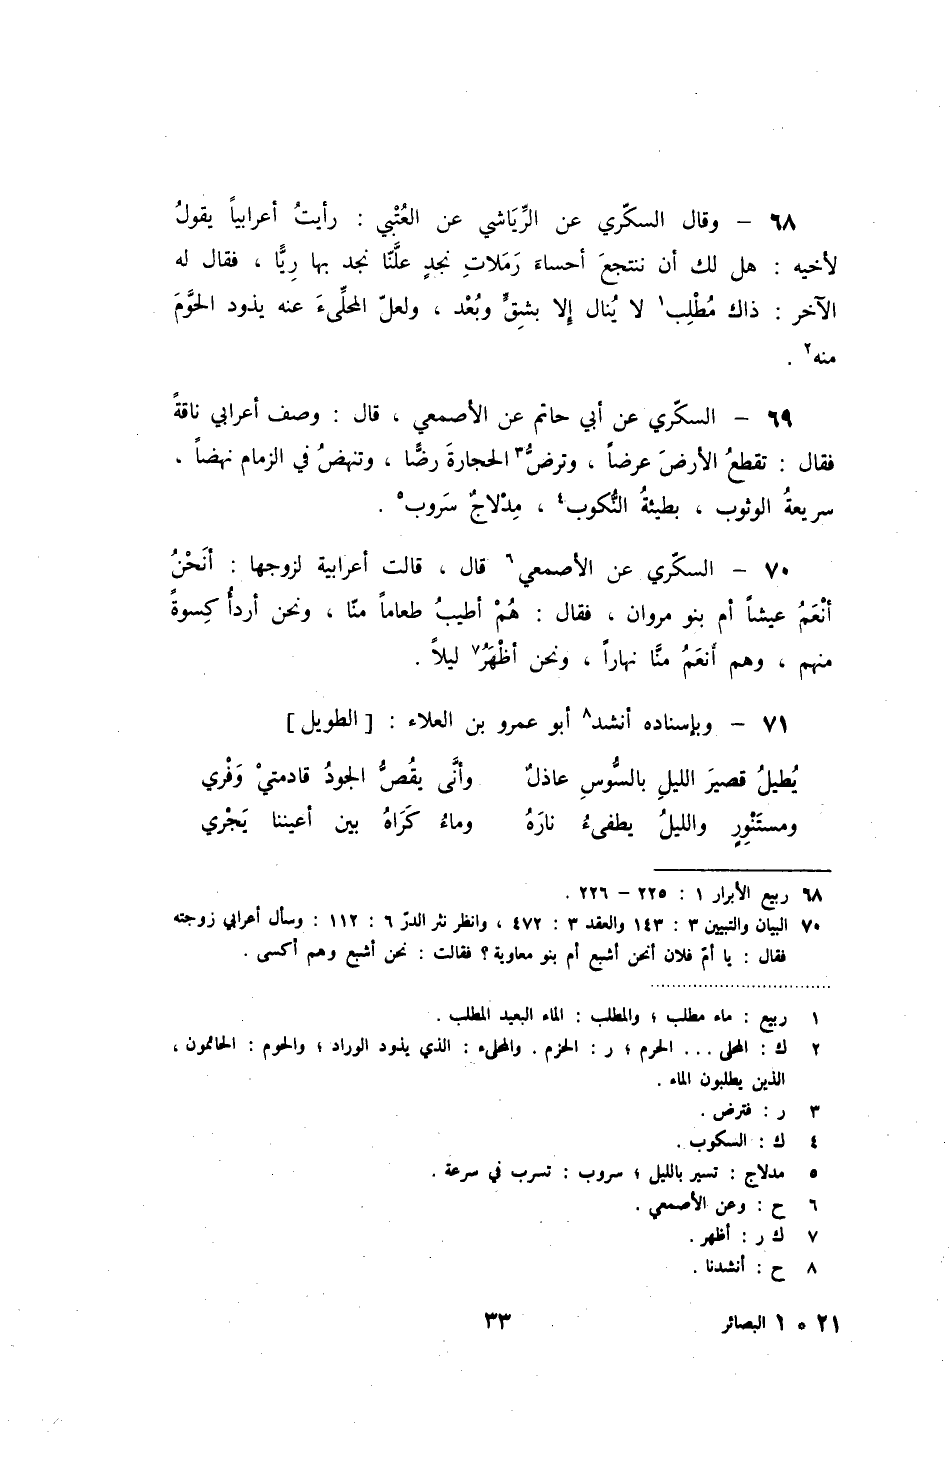 ٦٨ – وقال السكّري عن الرِّيَاشي عن العُتْبي : رأيتُ أعرابياً يقولُ
لأخيه : هل لك أن ننتجعَ أحساءَ رَمَلاتِ نجدٍ علَّنَا نجد بها رِيًّا ، فقال له
الآخر : ذاك مُطْلِب١ لا يُنال إلا بشِقٍّ وبُعْد ، ولعلّ المحلِّىءَ عنه يذود الحوَّمَ
منه٢ .
٦٩ – السكّري عن أبي حاتم عن الأصمعي ، قال : وصف أعرابي ناقةً
فقال : تقطعُ الأرضَ عرضاً ، وترضُّ٣ الحجارةَ رضًّا ، وتنهضُ في الزمام نهضاً .
سريعةُ الوثوب ، بطيئةُ النُّكوب٤ ، مِدْلاجٌ سَروب٥ .
٧٠ – السكّري عن الأصمعي٦ قال ، قالت أعرابية لزوجها : أنَحْنُ
أنْعَمُ عيشاً أم بنو مروان ، فقال : هُمْ أطيبُ طعاماً منّا ، ونحن أردأُ كِسوةً
منهم ، وهم أَنعَمُ منَّا نهاراً ، ونحن أظْهَرُ٧ ليلاً .
٧١ – وبإسناده أنشد٨ أبو عمرو بن العلاء : [ الطويل ]
يُطيلُ قصيرَ الليلِ بالسُّوسِ عاذلٌ وأنَّى يقُصُّ الجودُ قادمتيْ وَفْري
ومستَنْوِرٍ والليلُ يطفىءُ نارَهُ وماءُ كَرَاهُ بين أعيننا يَجْري
٦٨ ربيع الأبرار ١ : ٢٢٥ – ٢٢٦ .
٧٠ البيان والتبيين ٣ : ١٤٣ والعقد ٣ : ٤٧٢ ، وانظر نثر الدرّ ٦ : ١١٢ : وسأل أعرابي زوجته
فقال : يا أمّ فلان أنحن أشبع أم بنو معاوية ؟ فقالت : نحن أشبع وهم أكسى .
١ ربيع : ماء مطلب ؛ والمطلب : الماء البعيد المطلب .
٢ ك : المحلى ... الحرم ؛ ر : الحزم . والمحلىء : الذي يذود الوراد ؛ والحوم : الحائمون ،
الذين يطلبون الماء .
٣ ر : فترض .
٤ ك : السكوب .
٥ مدلاج : تسير بالليل ؛ سروب : تسرب في سرعة .
٦ ح : وعن الأصمعي .
٧ ك ر : أظهر .
٨ ح : أنشدنا .
٢١ ٥ ١ البصائر ٣٣